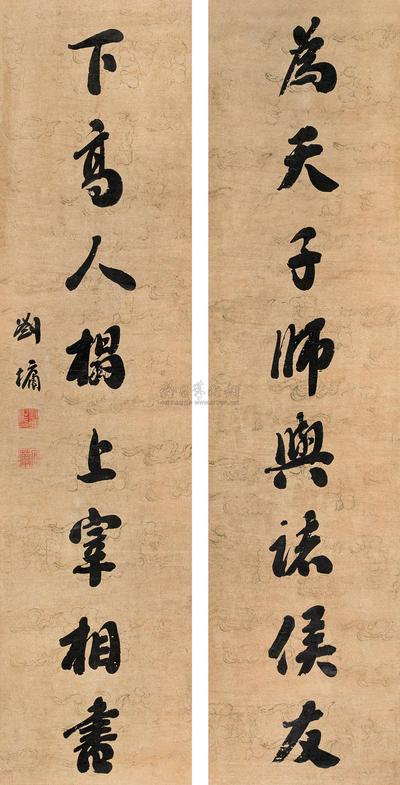 為天子師與諸侯友
下高人榻上宰相書
劉墉